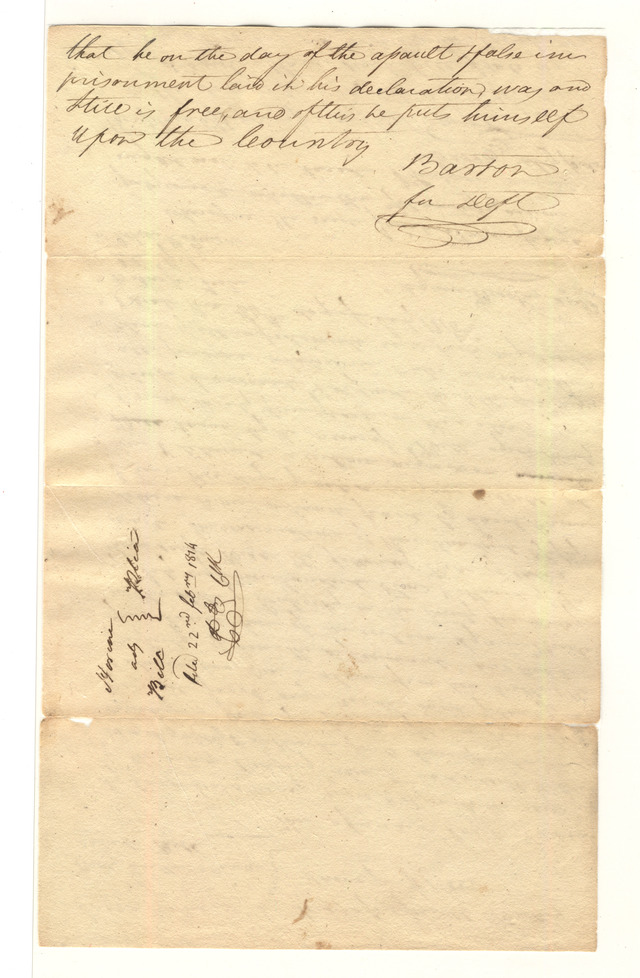 that he on the day of the assault & false im
prisonment laid in his declaration, was and
still is free, and of this he puts himself
upon the Country
Barton
for Deft
ads
Bill
Plea
filed 22nd feby 1814
Clk